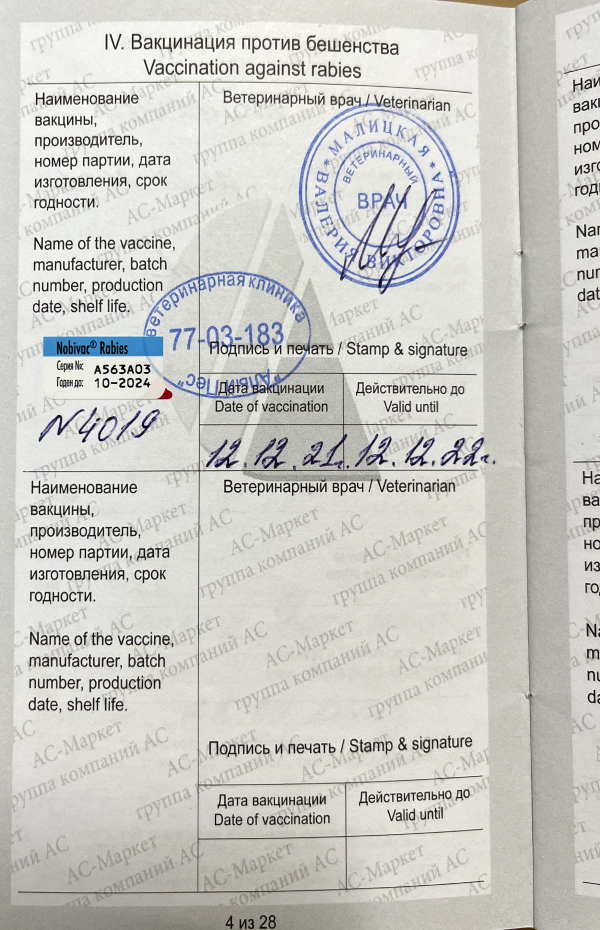 IV. Вакцинация против бешенства
Vaccination against rabies
Наименование
вакцины,
производитель,
номер партии, дата
изготовления, срок
годности.
Name of the vaccine,
manufacturer, batch
number, production
date, shelf life.
Ветеринарный врач / Veterinarian
* МАЛИЦКАЯ *
ВАЛЕРИЯ ВИКТОРОВНА
ВЕТЕРИНАРНЫЙ
ВРАЧ
ветеринарная клиника
77-03-183
"Алый Пёс"
Nobivac® Rabies
Серия №: A563A03
Годен до: 10-2024
N4019
Подпись и печать / Stamp & signature
Дата вакцинации
Date of vaccination
Действительно до
Valid until
12.12.21г.
12.12.22г.
Наименование
вакцины,
производитель,
номер партии, дата
изготовления, срок
годности.
Name of the vaccine,
manufacturer, batch
number, production
date, shelf life.
Ветеринарный врач / Veterinarian
Подпись и печать / Stamp & signature
Дата вакцинации
Date of vaccination
Действительно до
Valid until
АС-Маркет
группа компаний АС
4 из 28